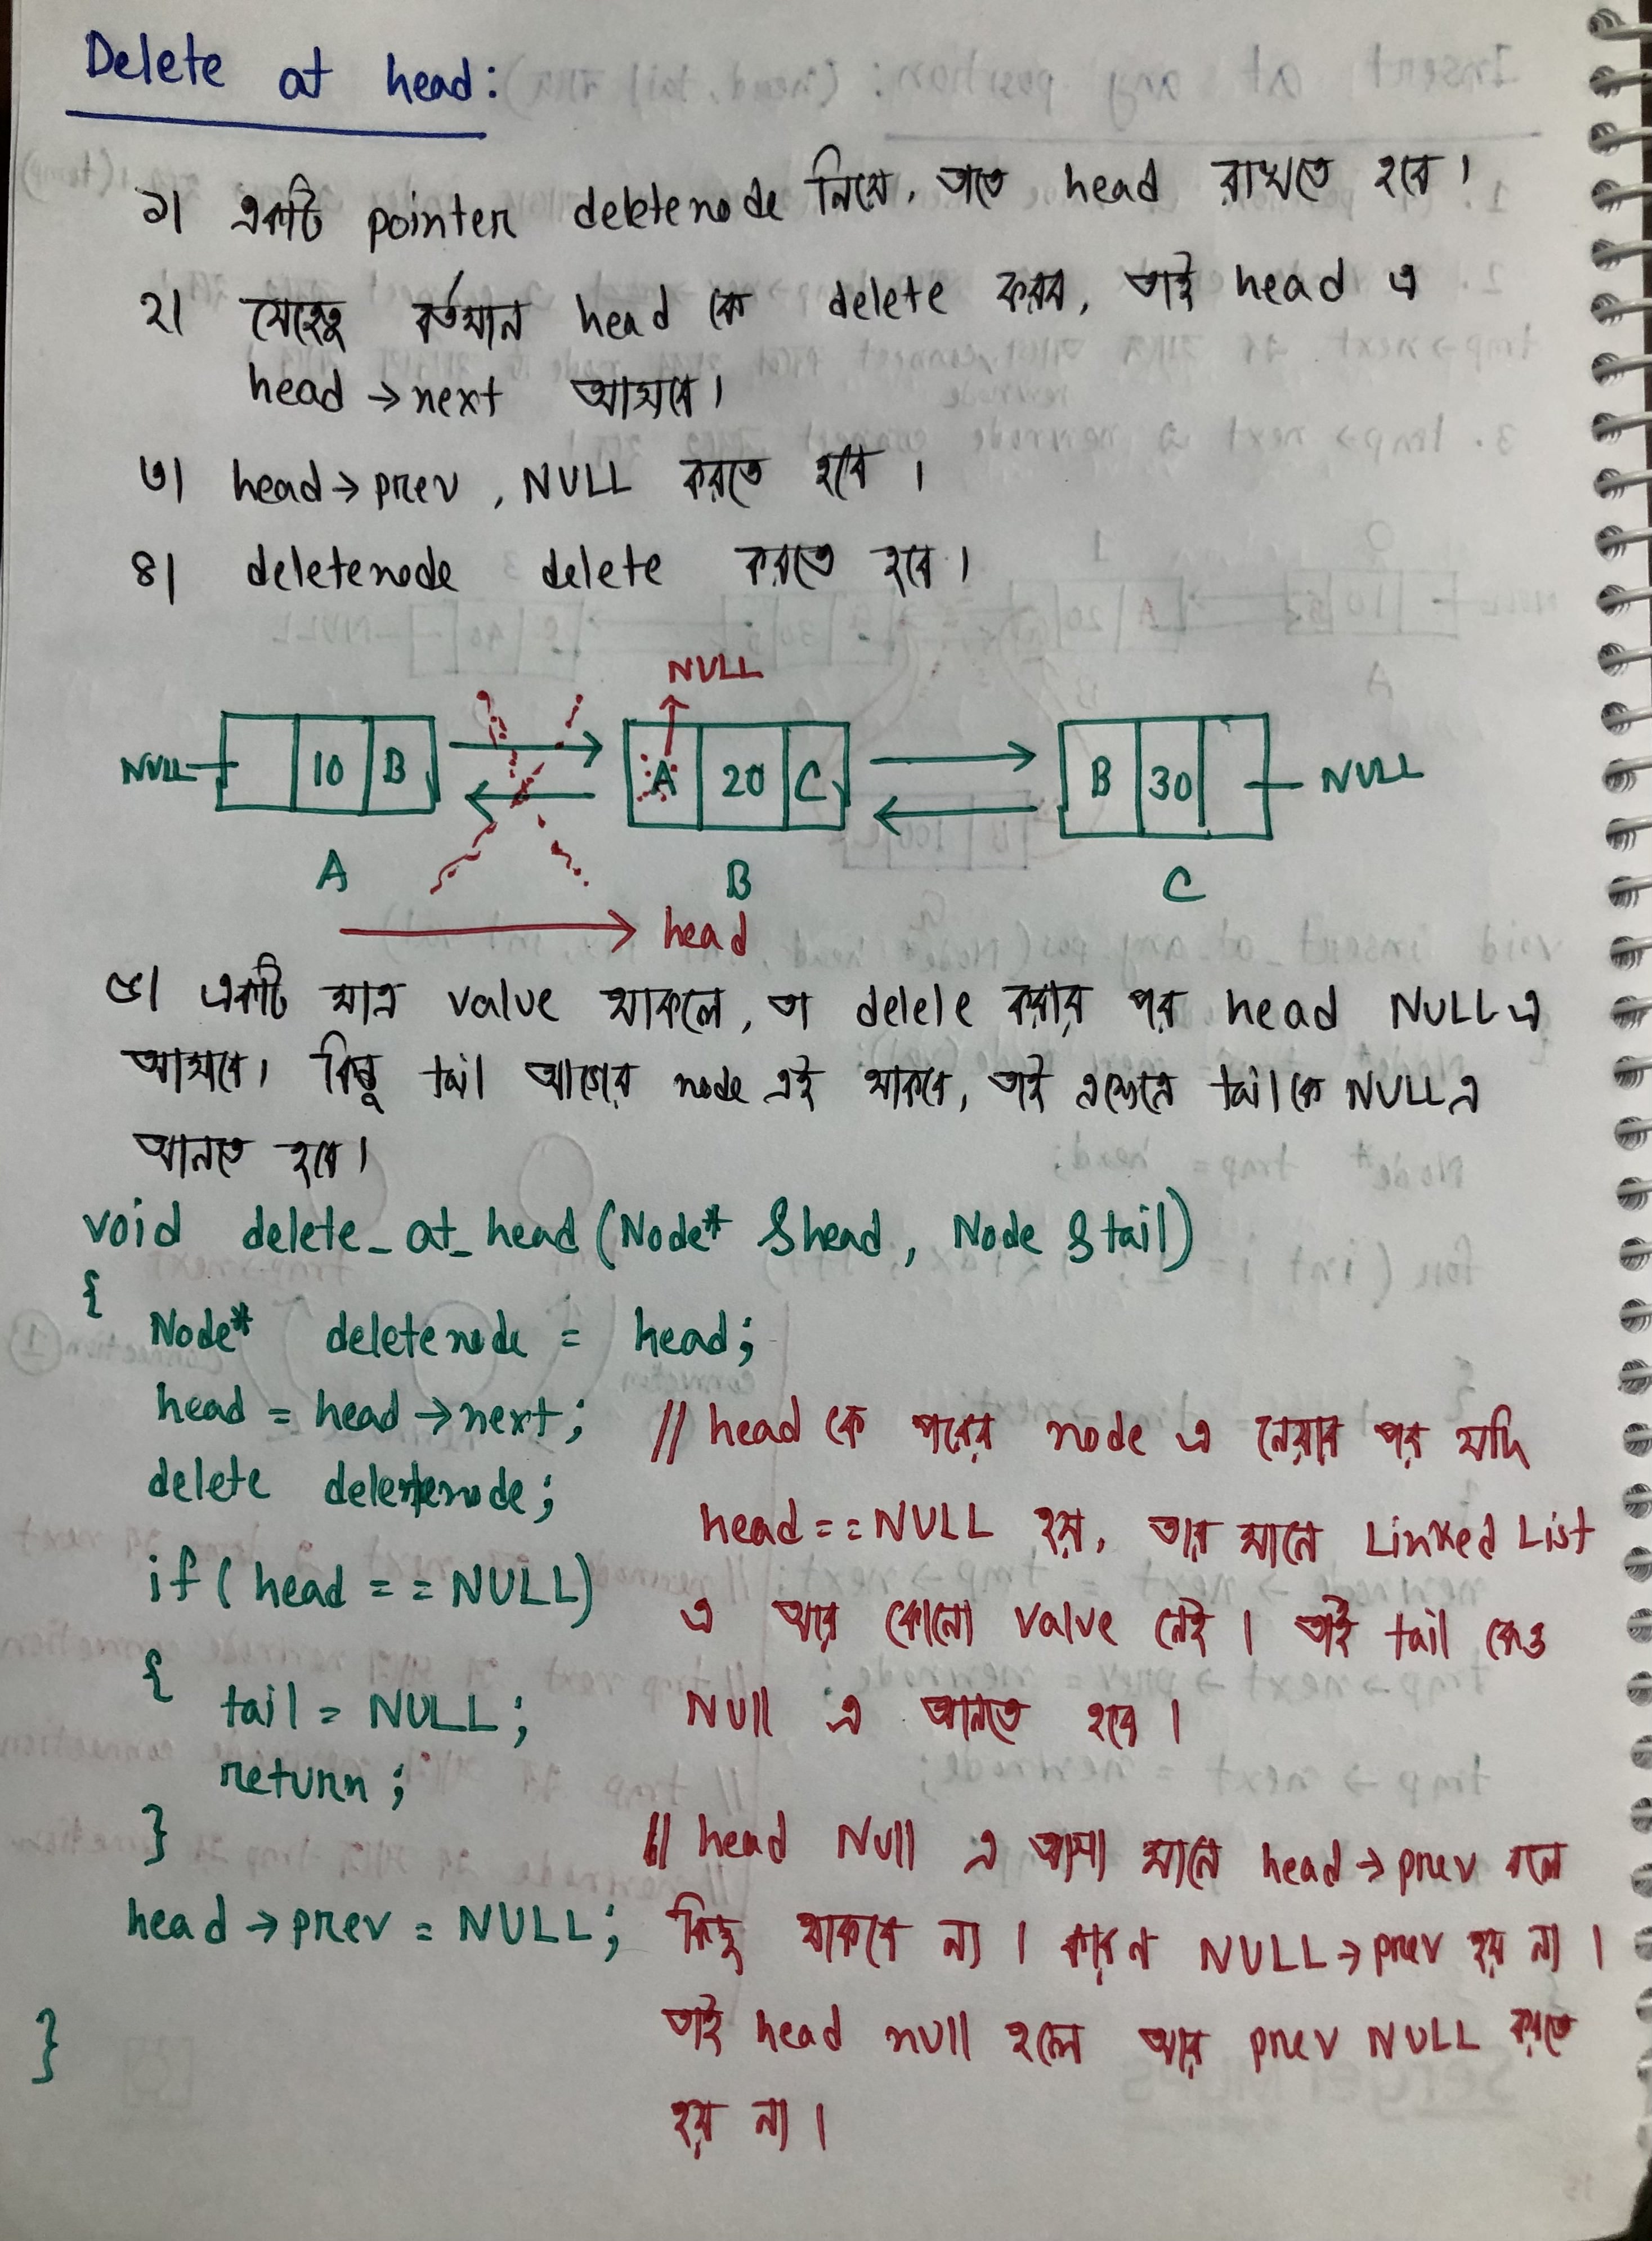 Delete at head:
১। একটি pointer deletenode নিয়ে, তাতে head রাখতে হবে।
২। যেহেতু বর্তমান head কে delete করব, তাই head এ
head → next আসবে।
৩। head → prev, NULL করতে হবে।
৪। deletenode delete করতে হবে।
NULL
NULL 10 B A 20 C B 30 NULL
A B C
head
৫। একটি মাত্র value থাকলে, তা delete করার পর head NULL এ
আসবে। কিন্তু tail আগের node এই থাকবে, তাই এখানে tail কে NULL এ
আনতে হবে।
void delete_at_head (Node* &head, Node &tail)
{
Node* deletenode = head;
head = head → next; // head কে পরের node এ নেয়ার পর যদি
delete deletenode;
head == NULL হয়, তার মানে Linked List
if (head == NULL)
এ আর কোনো value নেই। তাই tail কেও
{
tail = NULL; NUll এ আনতে হবে।
return;
} // head NUll এ আসা মানে head → prev বলে
head → prev = NULL; কিছু থাকবে না। কারণ NULL → prev হয় না।
} তাই head null হলে আর prev NULL করতে
হয় না।